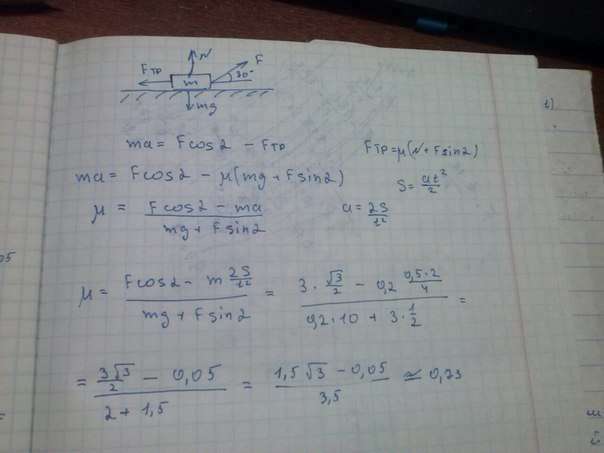 N
Fтр
F
m
30°
mg
ma = Fcosα − Fтр
Fтр = μ(N + Fsinα)
ma = Fcosα − μ(mg + Fsinα)
S = at²/2
μ = (Fcosα − ma)/(mg + Fsinα)
a = 2S/t²
μ = (Fcosα − m 2S/t²)/(mg + Fsinα) = (3 · √3/2 − 0,2 0,5·2/4)/(0,2 · 10 + 3 · 1/2) =
= (3√3/2 − 0,05)/(2 + 1,5) = (1,5√3 − 0,05)/3,5 ≈ 0,73